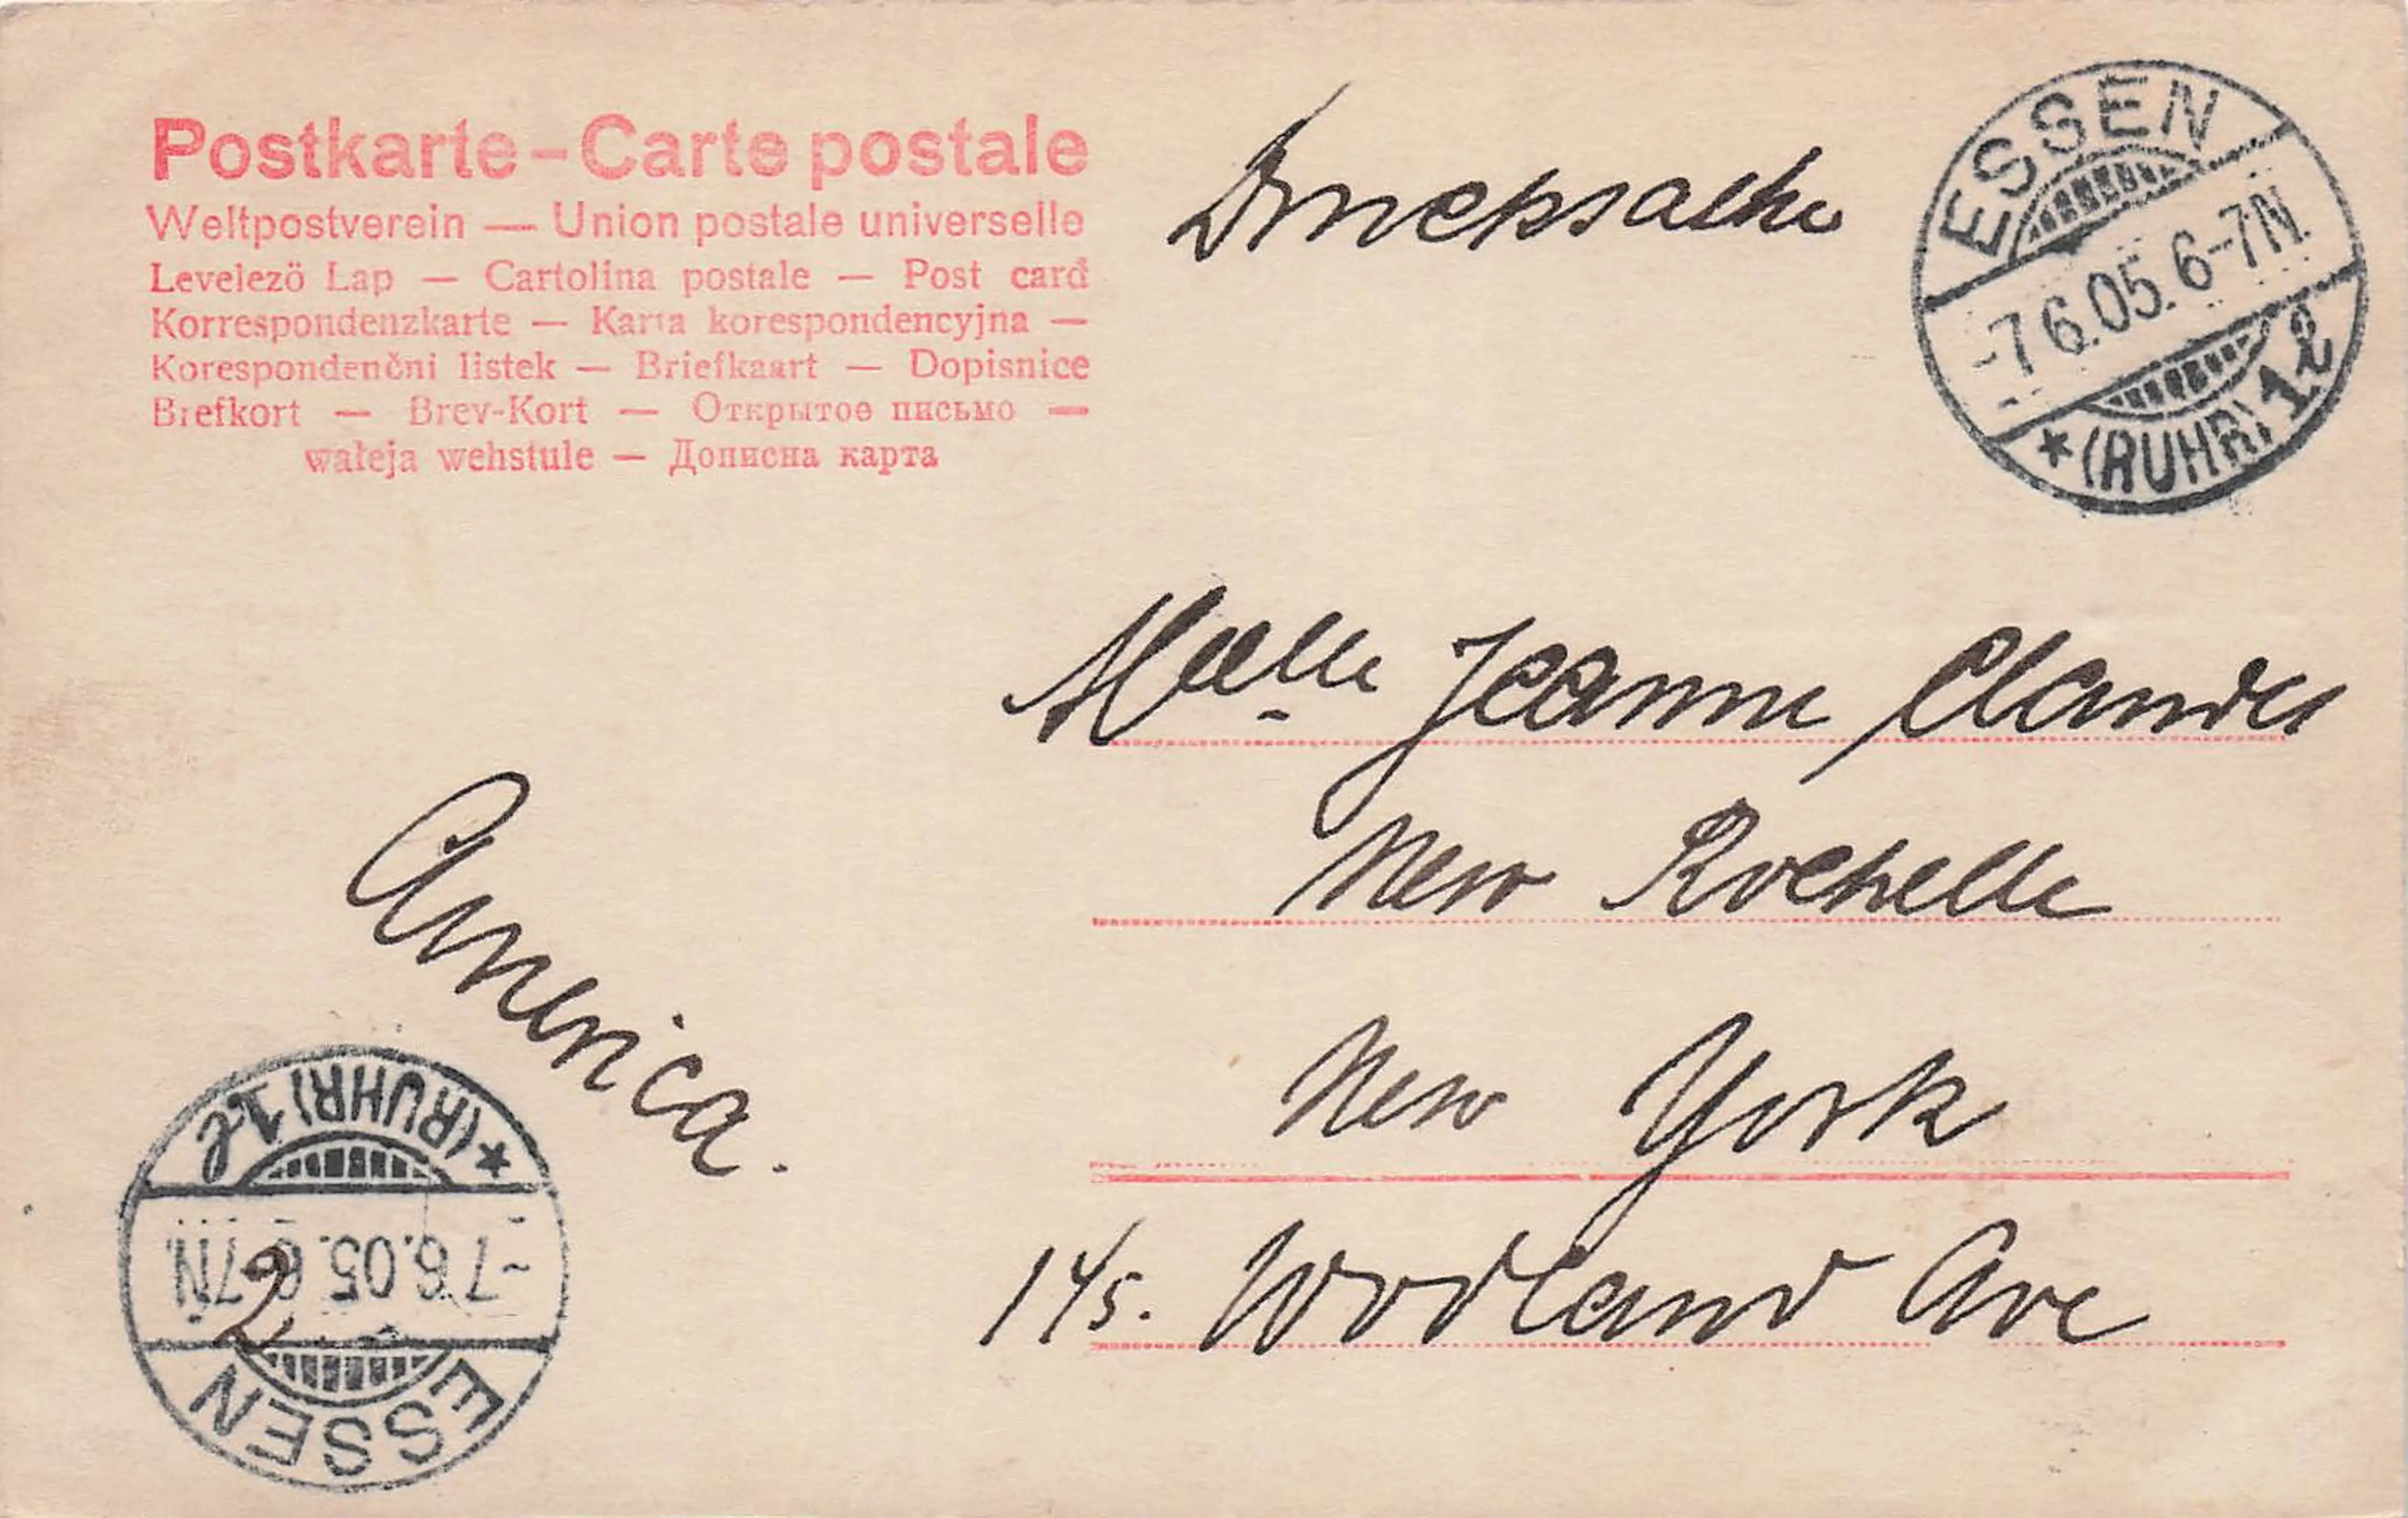 Postkarte - Carte postale
Weltpostverein — Union postale universelle
Levelező Lap — Cartolina postale — Post card
Korrespondenzkarte — Karta korespondencyjna —
Korespondenčni listek — Briefkaart — Dopisnice
Brefkort — Brev-Kort — Открытое письмо —
wateja wehstule — Дописна карта
Drucksache
ESSEN
-7 6.05. 6-7N.
* (RUHR) 1 l
Melle Jeanne
New Rochelle
New York
145. Woodland Ave
America.
* (RUHR) 1 l
-7 6.05. 6-7N.
2
ESSEN